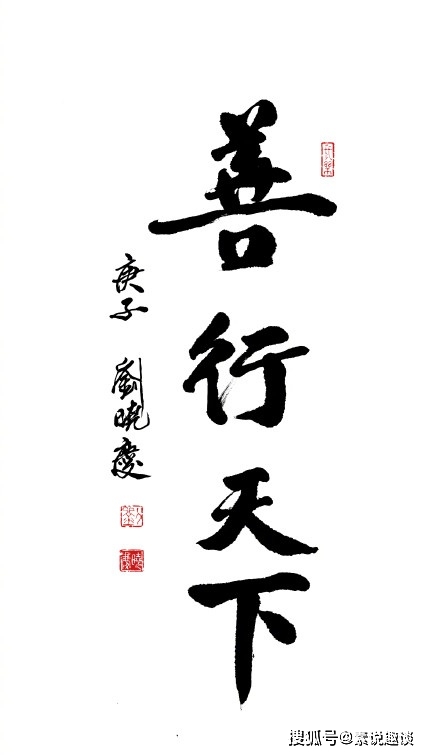 善行天下
庚子 劉曉慶
搜狐号@素说趣谈